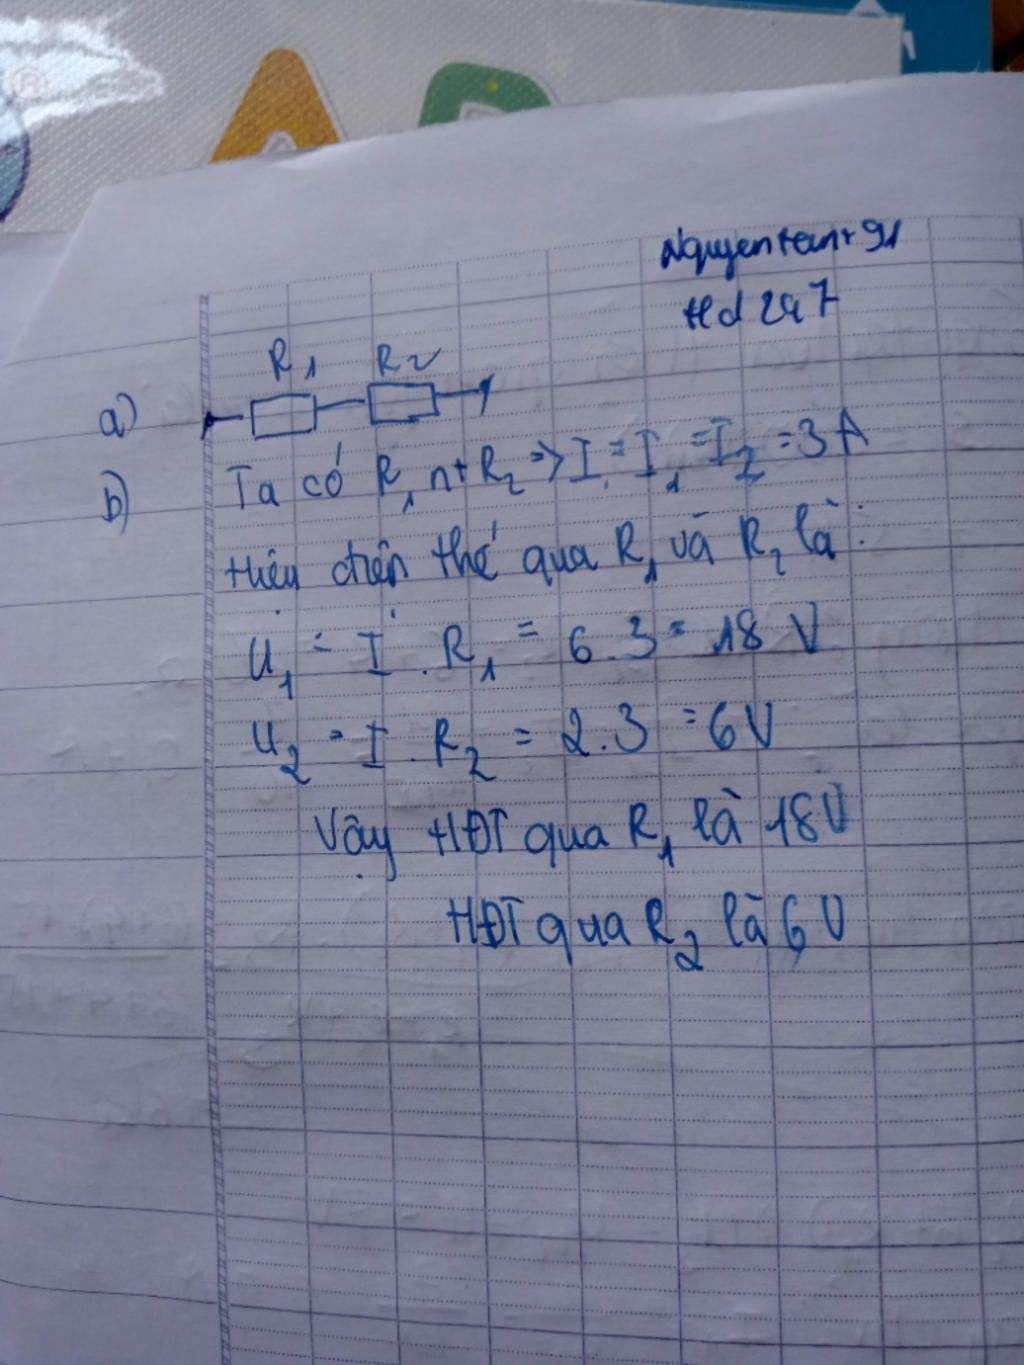 Nguyentant 91
Hd 247
R1 R2
a)
b) Ta có R1 nt R2 => I = I1 = I2 = 3 A
Hiệu điện thế qua R1 và R2 là:
U1 = I . R1 = 6.3 = 18 V
U2 = I . R2 = 2.3 = 6V
Vậy HĐT qua R1 là 18V
HĐT qua R2 là 6V